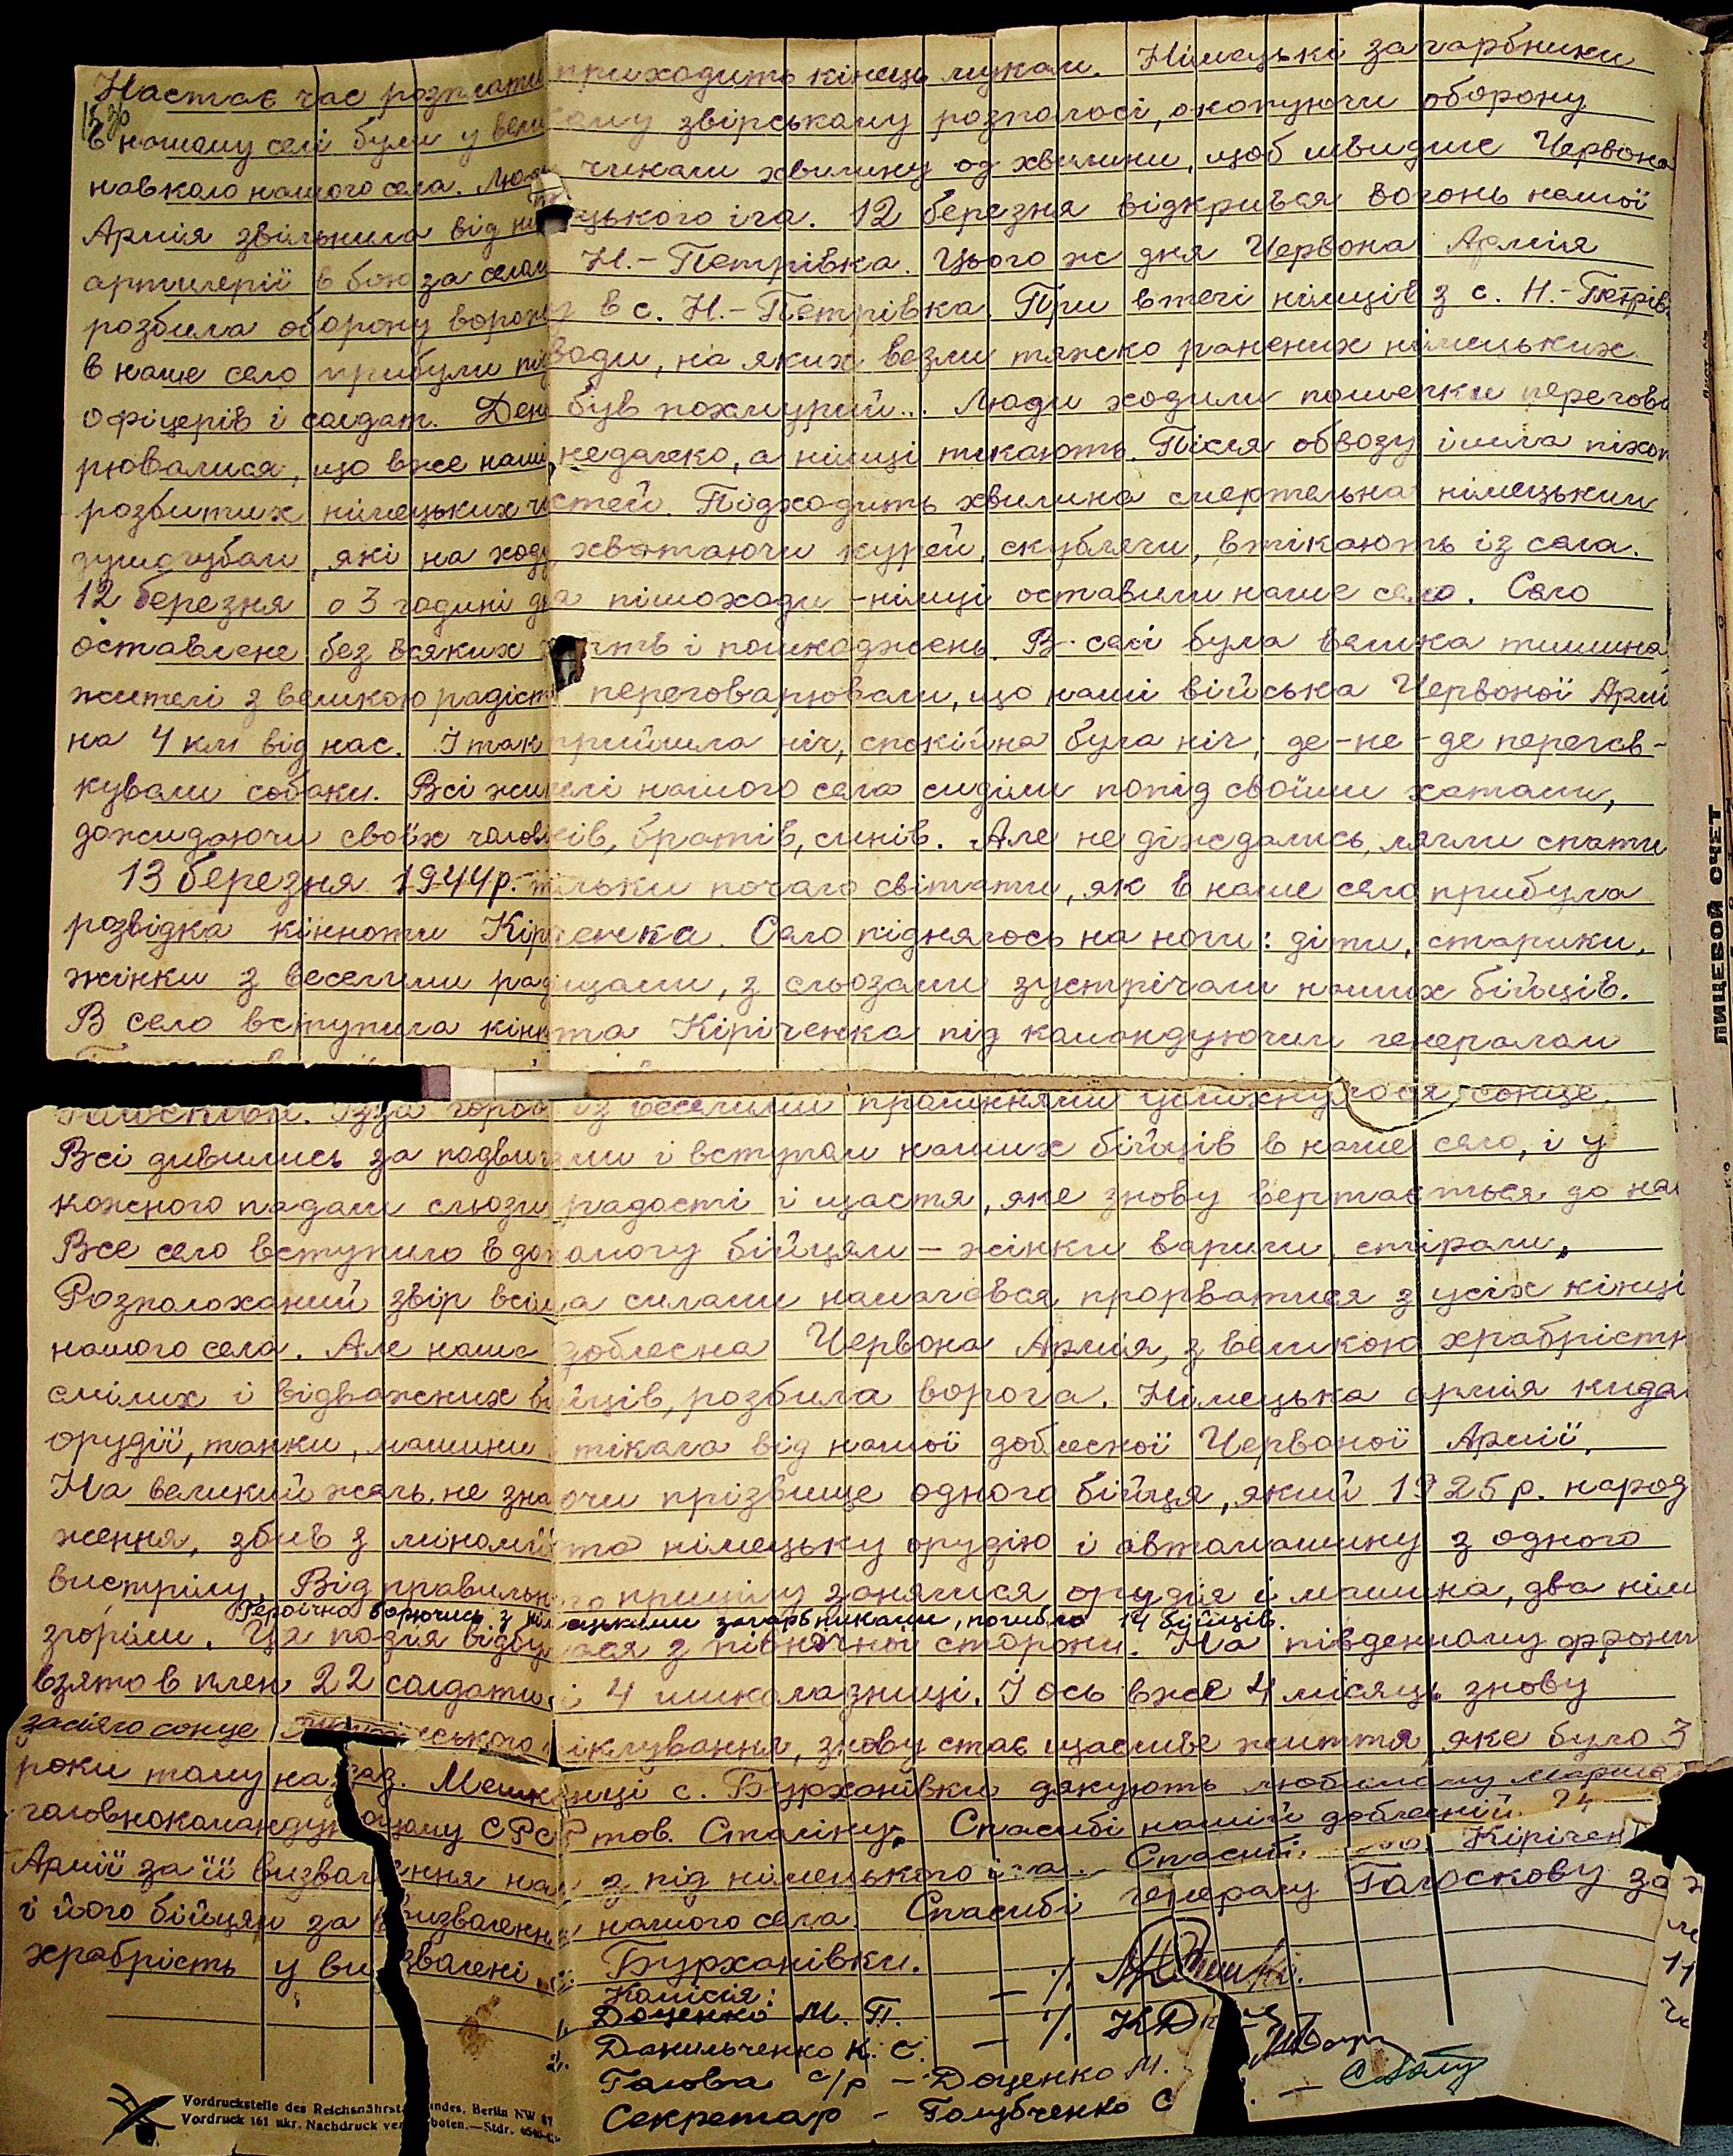 Настає час розплати приходить кінець мукам. Німецькі загарбники
в нашому селі були у великому звірському розпалосі, окопуючи оборону
навколо нашого села. Люди чикали хвилину од хвилини, щоб швидше Червона
Армія звільнила від німецького іга. 12 березня відкрився вогонь нашої
артилерії в бою за селом Н.-Петрівка. Цього ж дня Червона Армія
розбила оборону ворожу в с. Н.-Петрівка. При втечі німців з с. Н.-Петрівк
в наше село прибули підводи, на яких везли тяжко ранених німецьких
офіцерів і солдат. День був похмурий... Люди ходили пошепки перегова
рювалися, що вже наші недалеко, а німці тикають. Після обвозу ішла піхот
розбитих німецьких частей. Підходить хвилина смертельна німецьким
душогубам, які на ходу хватаючи курей, скублячи, втікають із села.
12 березня о 3 годині дня пішоходи-німці оставили наше село. Село
оставлене без всяких і пошкоджень. В селі була велика тишина
жителі з великою радістю переговарювали, що наші війська Червоної Армі
на 4 км від нас. І так прийшла ніч, спокійна була ніч, де-не-де перегав-
кували собаки. Всі жителі нашого села сиділи попід своїми хатами,
дожидаючи своїх чоловіків, братів, синів. Але не діждались, лягли спати
13 березня 1944р. тільки почало світати, як в наше село прибула
розвідка кінноти Кіріченка. Село піднялось на ноги: діти, старики,
жінки з веселими радощами, з сльозами зустрічали наших бійців.
В село вступила кіннота Кіріченка під командуючим генералом
із веселими проміннями усміхнулося сонце.
Всі дивились за подвигами і вступом наших бійців в наше село, і у
кожного падали сльози радості і щастя, яке знову вертається до нас
Все село вступило в допомогу бійцям - жінки варили, стірали,
Розполоханий звір всіма силами намагався прорватися з усіх кінці
нашого села. Але наша доблесна Червона Армія, з великою храбрістю
смілих і відважних бійців, розбила ворога. Німецька армія кида
орудії, танки, машини тікала від нашої доблесної Червоної Армії.
На великий жаль, не знаючи прізвище одного бійця, який 1925 р. народ
ження, збив з міномйота німецьку орудію і автомашину з одного
вистрілу. Від правильного прицілу занялися орудія і машина, два німц
Героїчно борючись з німецькими загарбниками, погибло 14 бійців.
згоріли. Ця подія відбулася з північної сторони. На південному фронті
взято в плен 22 солдати і 4 шикалазниці. І ось вже 4 місяць знову
засіяло сонце піклування, знову стає щасливе життя, яке було 3
роки тому назад. Мешканці с. Бурханівки дякують любимому марша
головнокомандуючому СРСР тов. Сталіну. Спасибі нашій доблесній
Армії за її визволення нас з під німецького іга. Спасибі Кірічен
і його бійцям за визволення нашого села. Спасибі генералу Галоскову за
храбрість у визволені Бурханівки.
Комісія:
1. Доценко М. П.
2. Данильченко К. С.
Голова с/р - Доценко М.
Секретар - Голубченко С
Vordruckstelle des Reichsnährstandes, Berlin NW 87
Vordruck 161 ukr. Nachdruck verboten.—Stdr.
ПИЦЕВОЙ СЧЕТ